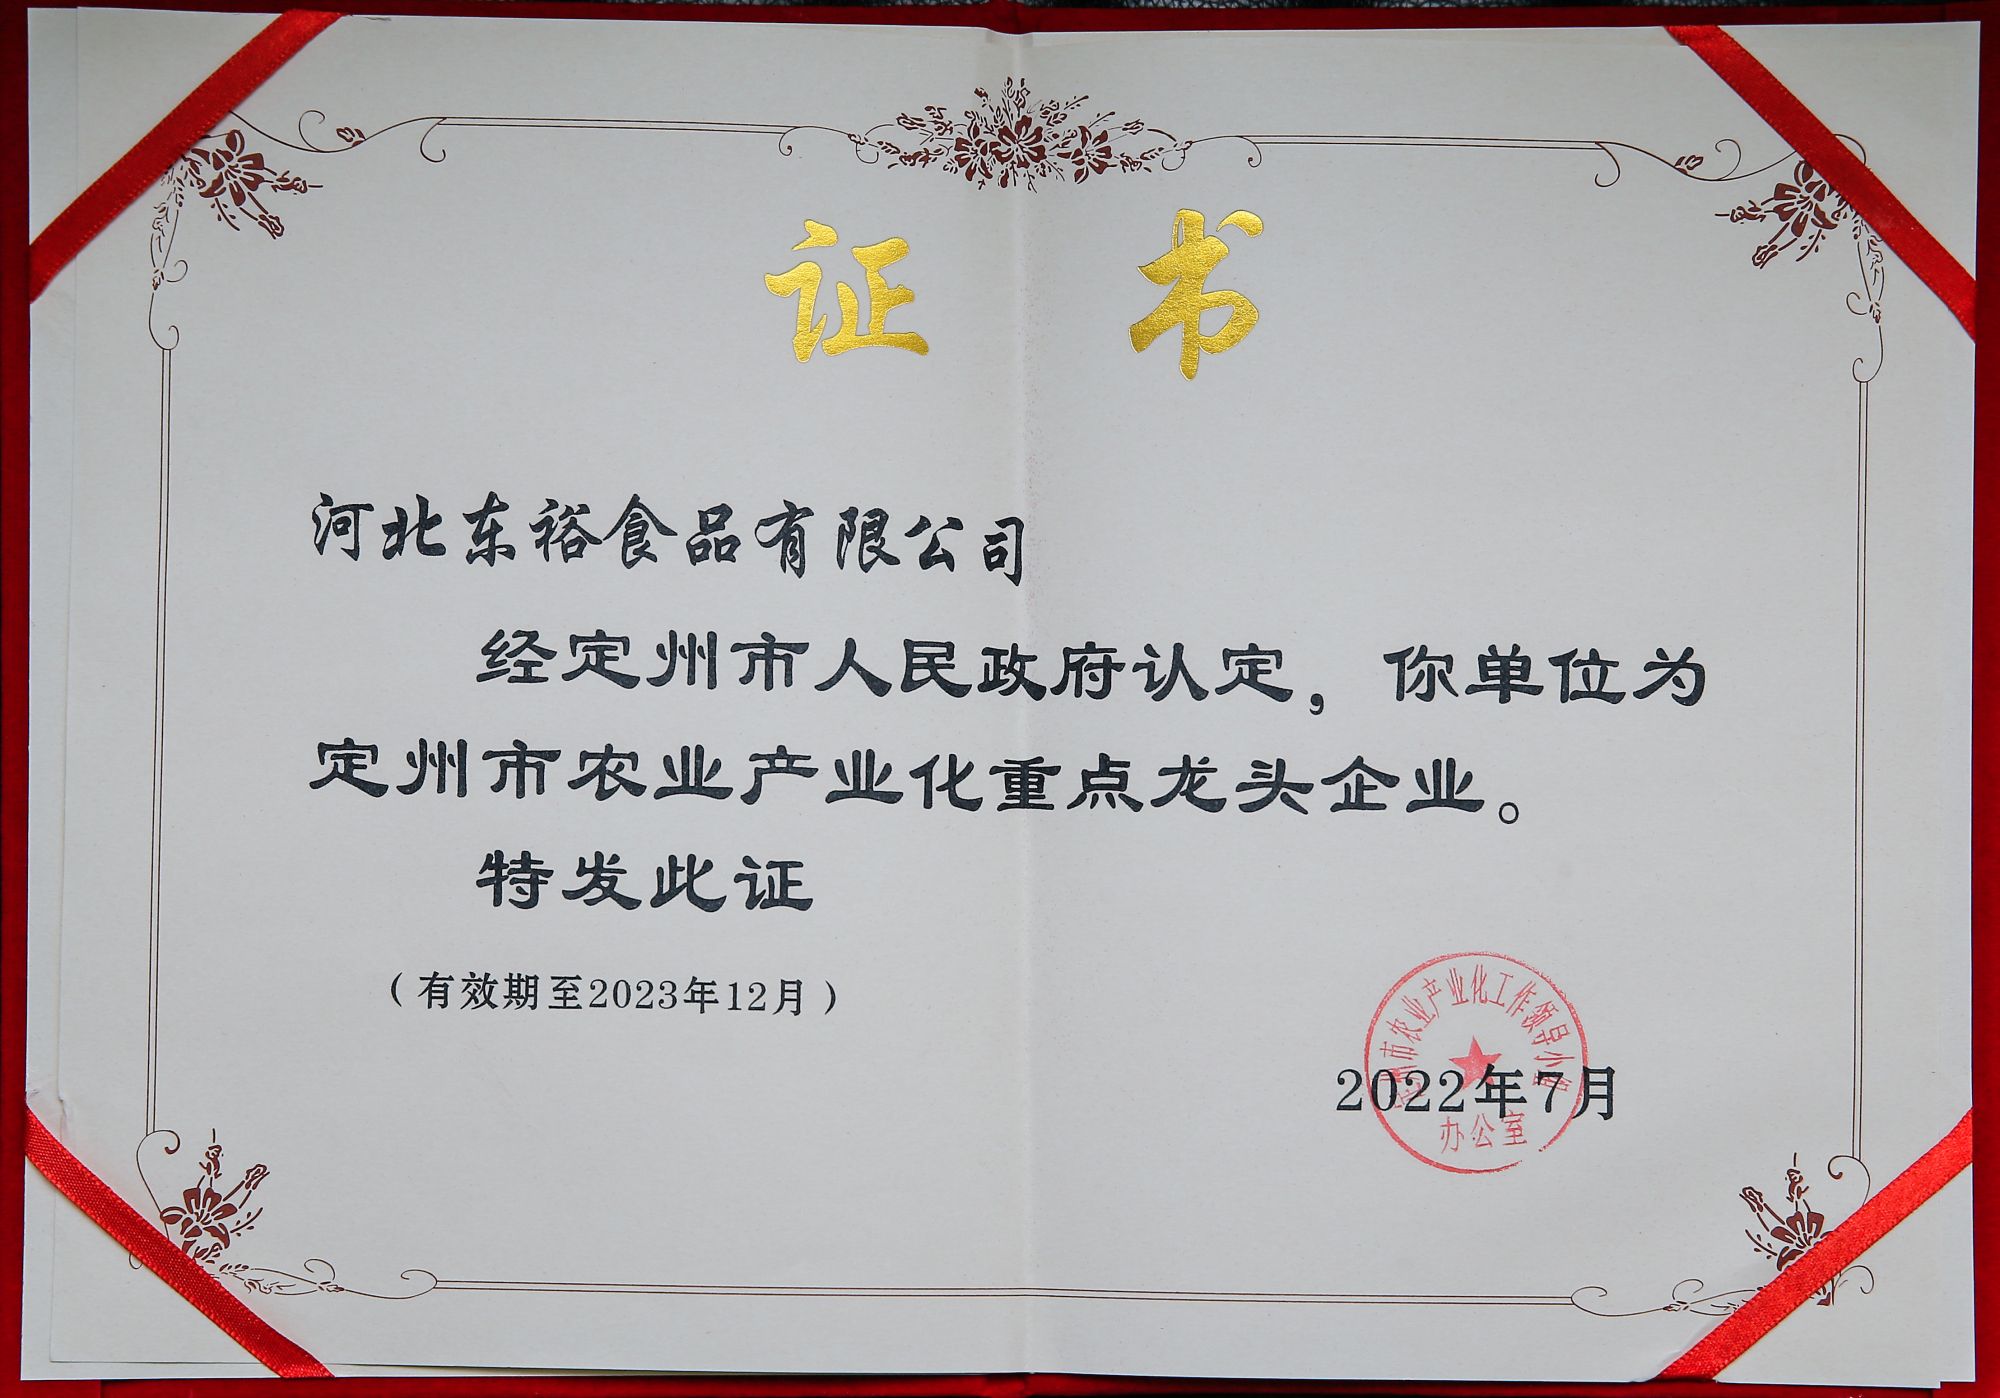 证书
河北东裕食品有限公司
经定州市人民政府认定，你单位为
定州市农业产业化重点龙头企业。
特发此证
（有效期至2023年12月）
定州市农业产业化工作领导小组
办公室
2022年7月